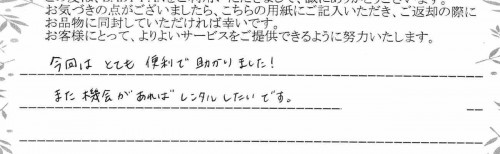 お気づきの点がございましたら、こちらの用紙にご記入いただき、ご返却の際に
お品物に同封していただければ幸いです。
お客様にとって、よりよいサービスをご提供できるように努力いたします。
今回は とても 便利で 助かりました!
また 機会が あれば レンタルしたい です。